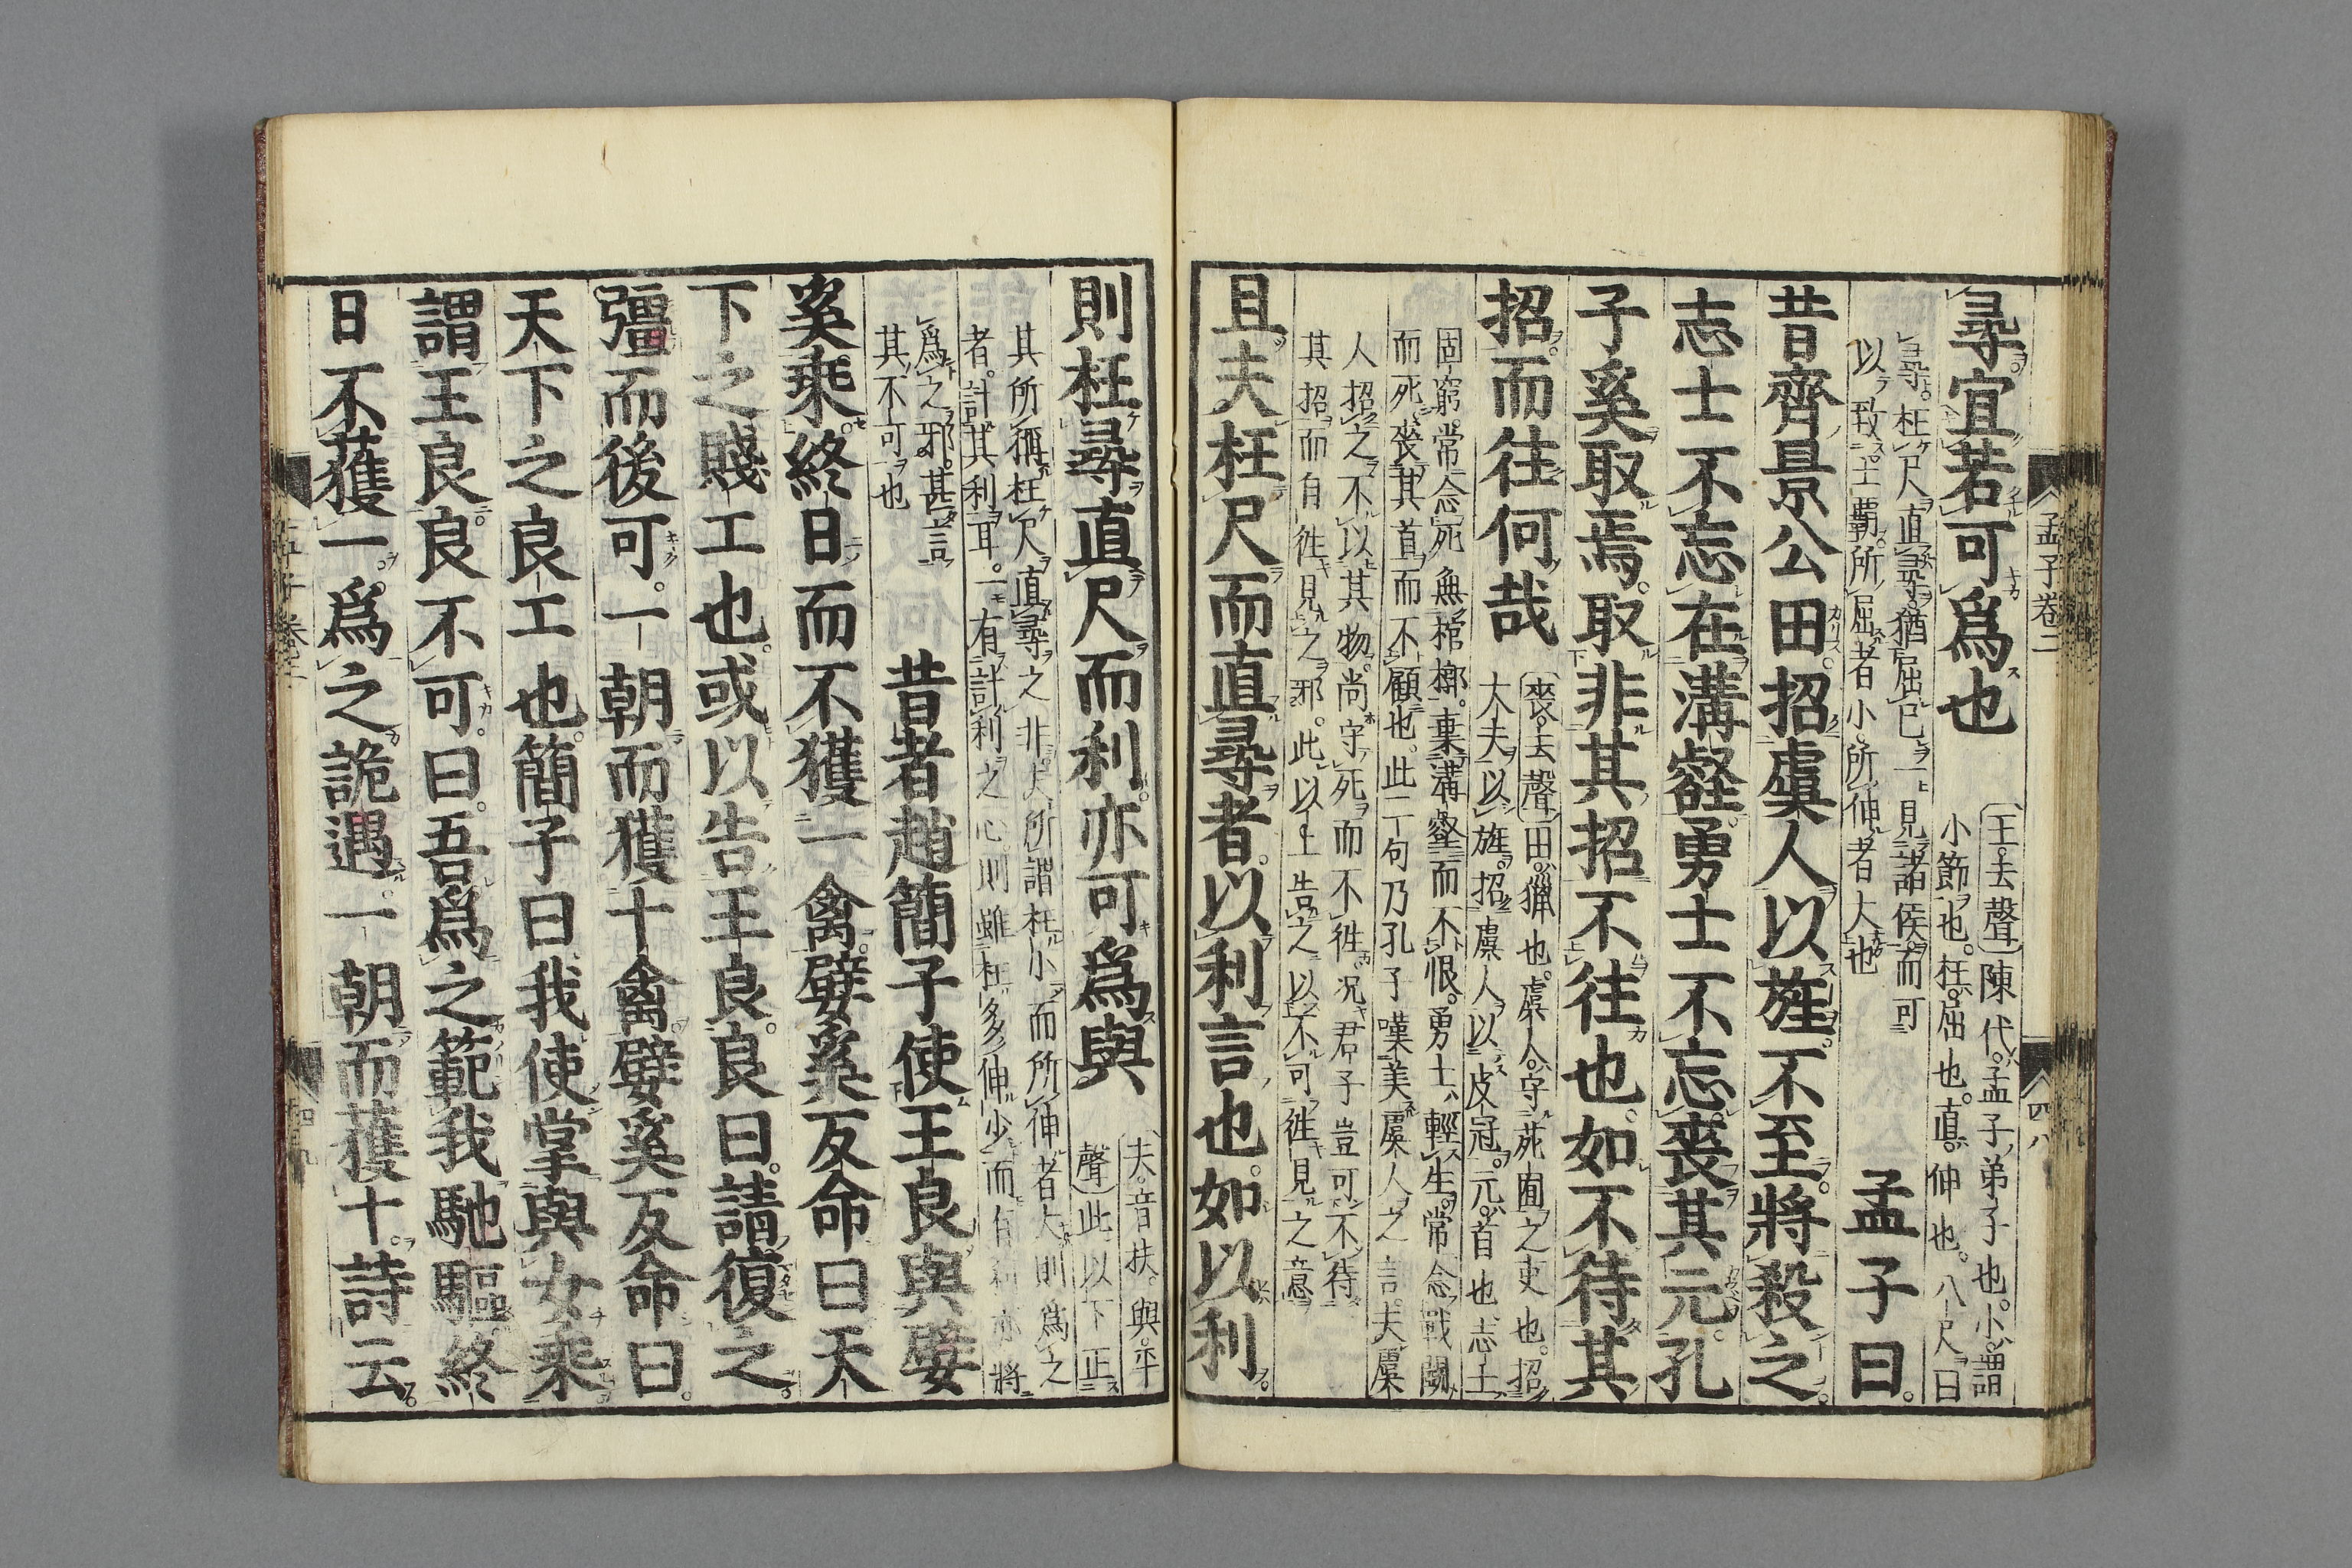 孟子卷二
四八
尋宜若可爲也
王去聲陳代孟子弟子也小謂
小節也枉屈也直伸也八尺曰
尋枉尺直尋猶屈己一見諸侯而可
以致王覇所屈者小所伸者大也
孟子曰
昔齊景公田招虞人以旌不至將殺之
志士不忘在溝壑勇士不忘喪其元孔
子奚取焉取非其招不往也如不待其
招而往何哉
喪去聲田獵也虞人守苑囿之吏也招
大夫以旌招虞人以皮冠元首也志士
固窮常念死無棺槨棄溝壑而不恨勇士輕生常念戰鬪
而死喪其首而不顧也此二句乃孔子嘆美虞人之言夫虞
人招之不以其物尚守死而不往况君子豈可不待
其招而自徃見之邪此以上告之以不可徃見之意
且夫枉尺而直尋者以利言也如以利
則枉尋直尺而利亦可爲與
夫音扶與平
聲此以下正
其所稱枉尺直尋之非夫所謂枉小而所伸者大則爲之
者計其利耳一有計利之心則雖枉多伸少而有利亦將
爲之邪甚言
其不可也
昔者趙簡子使王良與嬖
奚乘終日而不獲一禽嬖奚反命曰天
下之賤工也或以告王良良曰請復之
彊而後可一朝而獲十禽嬖奚反命曰
天下之良工也簡子曰我使掌與女乘
謂王良良不可曰吾爲之範我馳驅終
日不獲一爲之詭遇一朝而獲十詩云